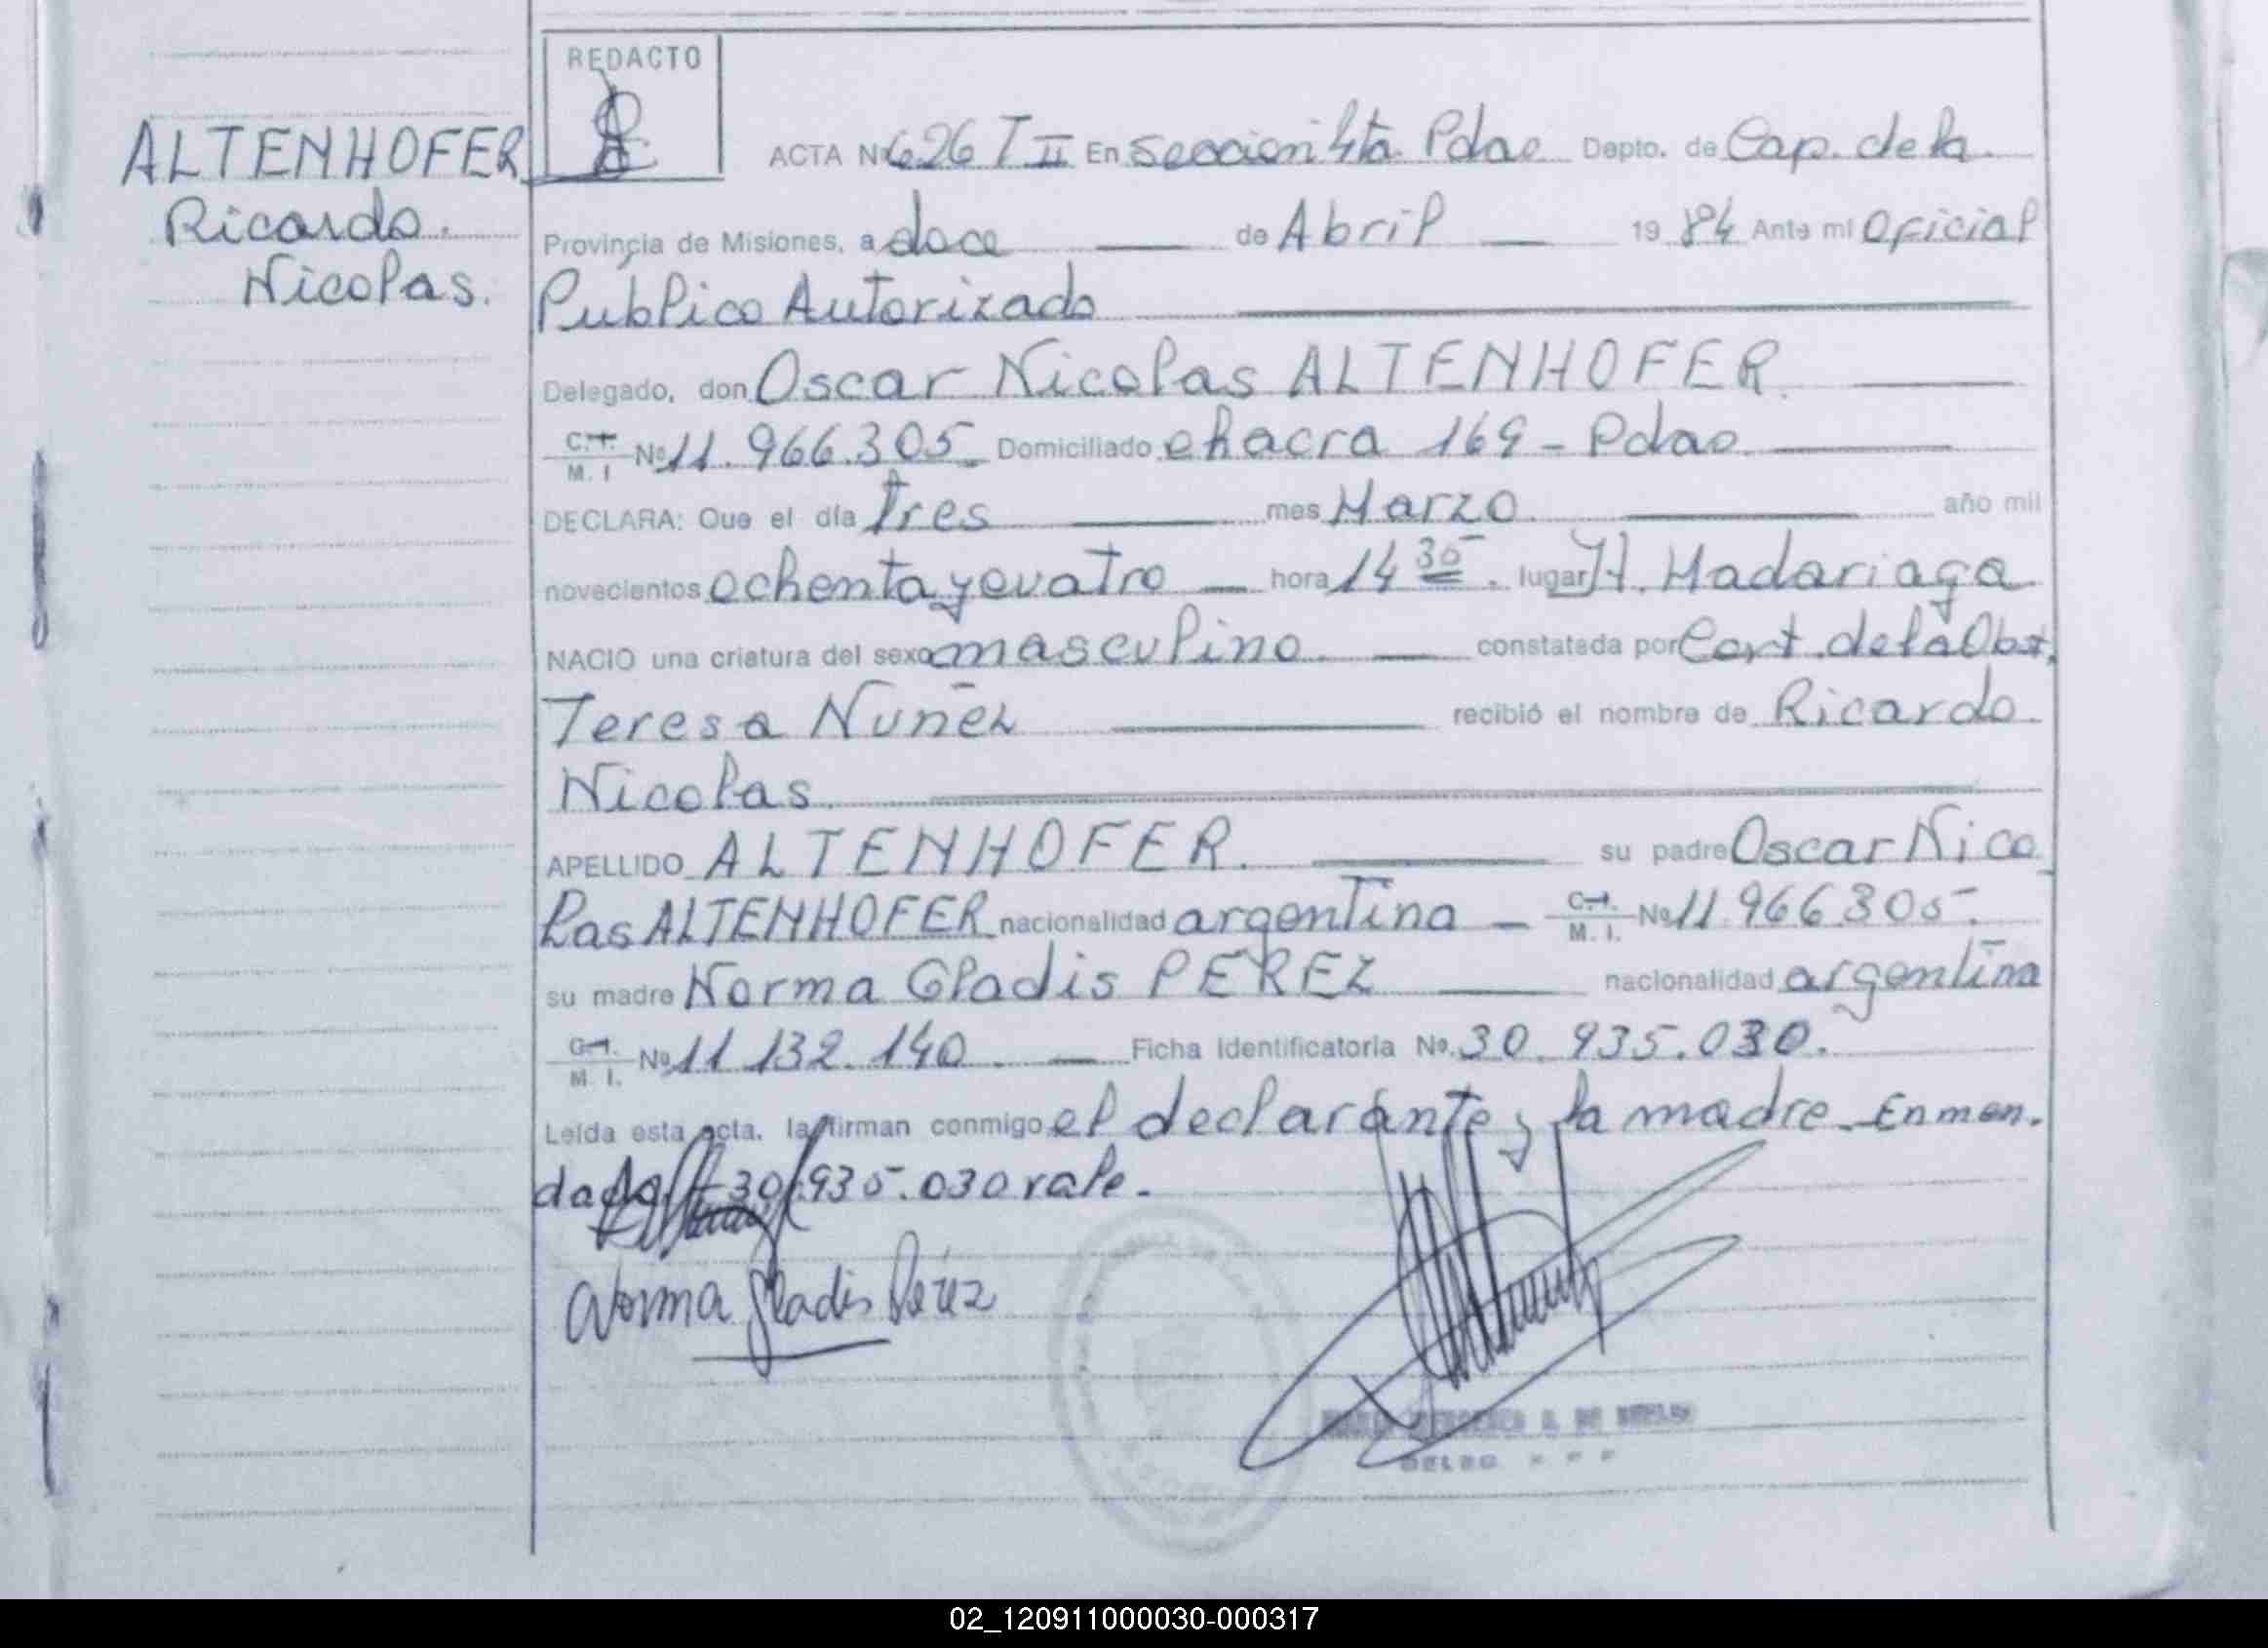 REDACTO
ALTENHOFER
Ricardo.
Nicolas.
ACTA Nº 626 T II En sección 4ta Pdas Depto. de Cap. de la
Provincia de Misiones, a doce de Abril 1984 Ante mí Oficial
Publico Autorizado
Delegado, don Oscar Nicolas ALTENHOFER.
C.I. M. I Nº 11.966.305 Domiciliado chacra 169 - Pdas
DECLARA: Que el día Tres mes Marzo año mil
novecientos ochenta y cuatro hora 14 30. lugar H. Madariaga
NACIO una criatura del sexo masculino constatada por Cert. de la Obst.
Teresa Nuñez recibió el nombre de Ricardo
Nicolas.
APELLIDO ALTENHOFER. su padre Oscar Nico
las ALTENHOFER nacionalidad argentina C.I. M. I. Nº 11.966.305.
su madre Norma Gladis PEREZ nacionalidad argentina
C.I. M. I. Nº 11.132.140 Ficha Identificatoria Nº 30.935.030.
Leída esta acta, la firman conmigo el declarante y la madre. Enmen.
dado 30.935.030 vale.
Norma Gladis Pérez
02_120911000030-000317